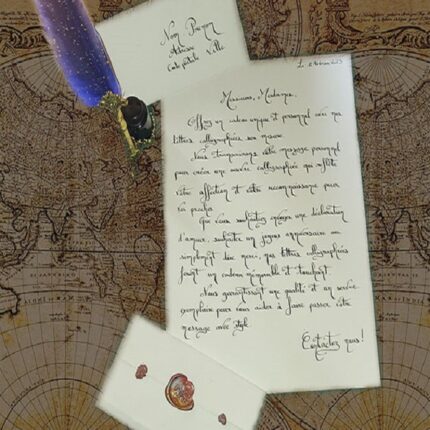 Nom Prénom
Adresse
Code postale Ville
Monsieur, Madame,
Offrez un cadeau unique et personnel avec nos
lettres calligraphiées sur mesure.
Nous transcrivons votre message personnel
pour créer une œuvre calligraphiée qui reflète
votre affection et votre reconnaissance pour
vos proches.
Que vous souhaitiez envoyer une déclaration
d'amour, souhaiter un joyeux anniversaire ou
simplement dire merci, nos lettres calligraphiées
font un cadeau mémorable et touchant.
Nous garantissons une qualité et un service
exemplaire pour vous aider à faire passer votre
message avec style.
Contactez nous!